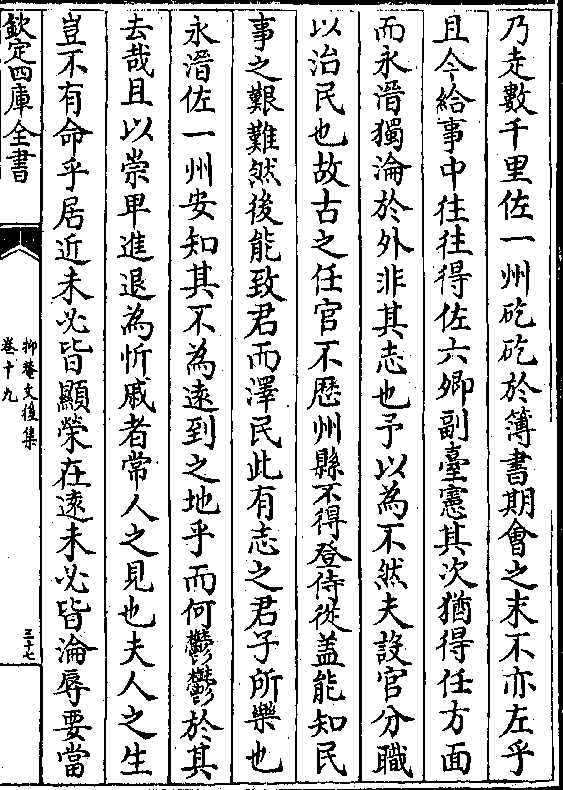 乃走數千里佐一州矻矻於簿書期會之末不亦左乎
且今給事中往往得佐六卿副臺憲其次猶得任方面
而永湣獨淪於外非其志也予以為不然夫設官分職
以治民也故古之任官不歴州縣不得登侍從盖能知民
事之艱難然後能致君而澤民此有志之君子所樂也
永湣佐一州安知其不為逺到之地乎而何鬱鬱於其
去哉且以崇卑進退為忻戚者常人之見也夫人之生
豈不有命乎居近未必皆顯榮在逺未必皆淪辱要當
欽定四庫全書
抑菴文後集
卷十九
三十七